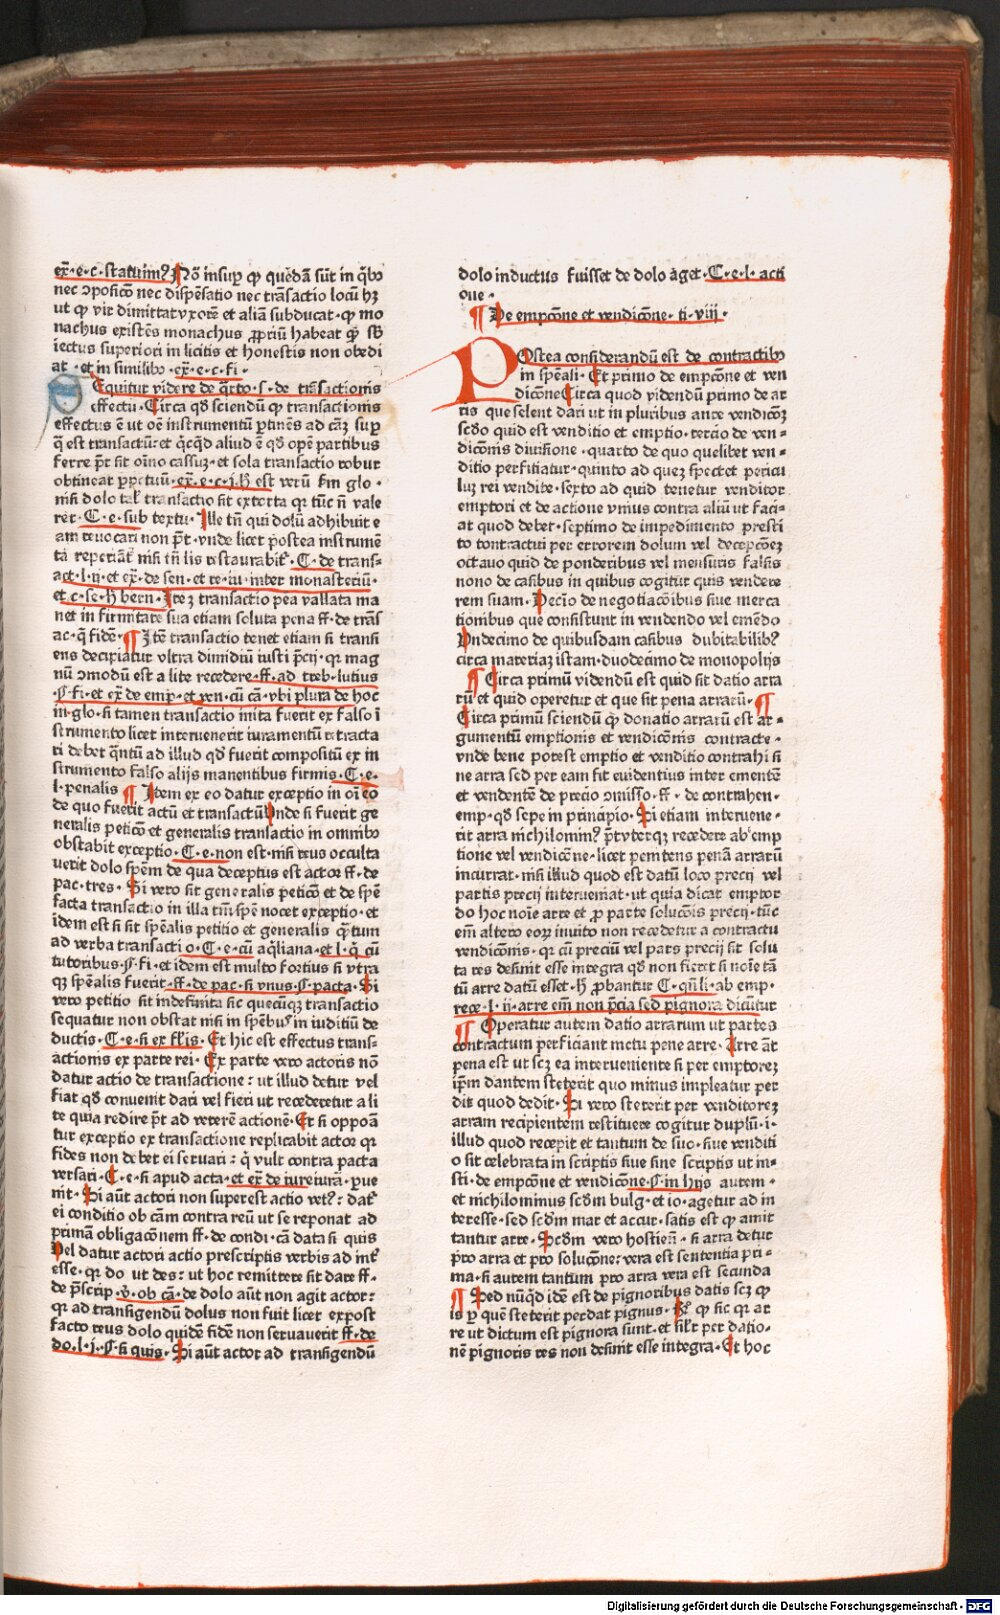 ex̄·e·c·statuim? Nō insup̱ qꝫ quēdā sūt in q̇bꝰ
nec ꝯposicō nec dispēsatio nec trāsactio locū hꝫ
ut qꝫ vir dimittat vxorē et aliā subducat· qꝫ mo
nachus existēs monachus ꝓpriū habeat qꝫ sb̄
iectus superiori in licitis et honestis non obedi
at· et in similibꝰ· ex̄·e·c·fi·
Equitur videre de q̄rto·s·de trāsactionis
effectu· Circa qd̄ sciendū qꝫ transactionis
effectus ē ut oē instrumentū ꝑtinēs ad cāꝫ sup̱
q̄ est transactū: et q̇cq̇d aliud ē qd̄ opē partibus
ferre pt̄ sit oīno cassuꝫ· et sola transactio robur
obtineat ꝑpetuū· ex̄·e·c·j· h̄ est verū sm̄ glo·
nisi dolo tal̄ transactio sit extorta qꝛ tūc n̄ vale
ret· C·e·sub textu· Ille tn̄ qui dolū adhibuit e
am reuocari non pt̄· vnde licet postea instrumē
ta reperiāt̄ nisi in̄ lis restaurabit̄· C· de trans-
act·l·ij· et ex̄·de sen·et re·iu·inter monasteriū·
et c·se·h bern· Iteꝫ transactio pea vallata ma
net in firmitate sua etiam soluta pena ff·de trās
ac·q̄ fidē· ¶ Itē transactio tenet etiam si transi
ens decipiatur vltra dimidiū iusti p̄cij· qꝛ mag
nū ꝯmodū est a lite recedere· ff·ad treb·lutius
·¶·fi·et ex̄ de emp·et ven·cū cā·vbi plura de hoc
in·glo·si tamen transactio inita fuerit ex falso ī
strumento licet interuenerit iuramentū retracta
ri debet q̄ntū ad illud qd̄ fuerit compositū ex in
strumento falso alijs manentibus firmis· C·e·
l·penalis ¶ Item ex eo datur exceptio in oī eo
de quo fuerit actū et transactū Unde si fuerit ge
neralis peticō et generalis transactio in omnibꝰ
obstabit exceptio· C·e·non est·nisi reus occulta
uerit dolo spēm de qua deceptus est actor ff·de
pac·tres· Si vero sit generalis peticō et de spē
facta transactio in illa tm̄ spē nocet exceptio·et
idem est si sit spēalis petitio et generalis q̄tum
ad verba transactio· C·e·cū aq̄liana·et l·q̄ cū
tutoribus·¶·fi·et idem est multo fortius si vtra
qꝫ spēalis fuerit·ff·de pac·si vnus·¶·pacta· Si
vero petitio sit indefinita sic quecūqꝫ transactio
sequatur non obstat nisi in spēbꝰ in iuditiū de
ductis· C·e·si ex fl̄is· Et hic est effectus trans-
actionis ex parte rei· Ex parte vero actoris nō
datur actio de transactione: ut illud detur vel
fiat qd̄ conuenit dari vel fieri ut recederetur a li
te quia redire pt̄ ad veterē actionē· Et si oppoā
tur exceptio ex transactione replicabit actor qꝛ
fides non debet ei seruari: q̄ vult contra pacta
versari· C·e·si apud acta·et ex̄ de iureiura·ꝑue
nit· Si aūt actori non superest actio vet?: dat̄
ei conditio ob cām contra reū ut se reponat ad
primā obligacōnem ff·de condi·cā data si quis
Uel datur actori actio prescriptis verbis ad int̄
esse·qꝛ do ut des: ut hoc remittere sit dare ff·
de p̄scrip·v̄·ob cā·de dolo aūt non agit actor:
qꝛ ad transigendū dolus non fuit licet expost
facto reus dolo quidē fidē non seruauerit ff·de
do·l·j·¶·si quis· Si aūt actor ad transigendū
dolo inductus fuisset de dolo aget· C·e·l·acti
one·
¶ De empcōne et vendicōne· ti·viij·
POstea considerandū est de contractibꝰ
in spēali· Et primo de empcōne et ven
dicōne Circa quod videndū primo de ar
ris que solent dari ut in pluribus ante vendicōꝫ
scd̄o quid est venditio et emptio·tercio de ven-
dicōnis diuisione·quarto de quo quelibet ven-
ditio perfitiatur·quinto ad queꝫ spectet pericu
luꝫ rei vendite·sexto ad quid tenetur venditor
emptori et de actione vnius contra aliū ut faci-
at quod debet·septimo de impedimento presti
to contractui per errorem dolum vel decepcōeꝫ
octauo quid de ponderibus vel mensuris falsis
nono de casibus in quibus cogitur quis vendere
rem suam· Decīo de negotiacōibus siue merca
tionibus que consistunt in vendendo vel emēdo
Undecimo de quibusdam casibus dubitabilibꝰ
circa materiaꝫ istam·duodecimo de monopolijs
¶ Circa primū videndū est quid sit datio arra
rū et quid operetur et que sit pena arrarū· ¶
Circa primū sciendū qꝫ donatio arrarū est ar-
gumentū emptionis et vendicōnis contracte·
vnde bene potest emptio et venditio contrahi si
ne arra sed per eam fit euidentius inter ementē
et vendentē de precio ꝯmisso·ff·de contrahen·
emp·qd̄ sepe in principio· Si etiam interuene-
rit arra nichilomin? pt̄ vterqꝫ recedere ab emp
tione vel vendicōne·licet penitens penā arrarū
incurrat·nisi illud quod est datū loco precij vel
partis precij interueniat·ut quia dicat emptor
do hoc noīe arre et ꝓ parte solucōis precij·tūc
em̄ altero eoꝝ inuito non recedetur a contractu
vendicōnis·qꝛ cū preciū vel pars precij sit solu
ta res desinit esse integra qd̄ non fieret si noīe tā
tū arre datū esset·h̄ ꝓbantur C·qn̄ li·ab emp·
rece·l·ij·arre em̄ non p̄cia sed pignora dicūtur
¶ Operatur autem datio arrarum ut partes
contractum perficiant metu pene arre· Arre āt
pena est ut scꝫ ea interueniente si per emptoreꝫ
ip̄m dantem steterit quo minus impleatur per
dit quod dedit· Si vero steterit per venditoreꝫ
arram recipientem restituere cogitur duplū·i·
illud quod recepit et tantum de suo·siue venditi
o sit celebrata in scriptis siue sine scriptis ut in-
sti·de empcōne et vendicōne·¶·in hijs autem·
et nichilominus scd̄m bulg·et io·agetur ad in
teresse·sed scd̄m mar et accur·satis est qꝫ amit
tantur arre· Scd̄m vero hostien̄·si arra detur
pro arra et pro solucōne: vera est sententia pri-
ma·si autem tantum pro arra vera est secunda
¶ Sed nūq̇d idē est de pignoribus datis scꝫ qꝫ
is ꝑ quē steterit perdat pignus· R̄ qꝫ sic qꝛ ar
re ut dictum est pignora sunt·et sil̄r per datio-
nē pignoris res non desinit esse integra· Et hoc
Digitalisierung gefördert durch die Deutsche Forschungsgemeinschaft - DFG